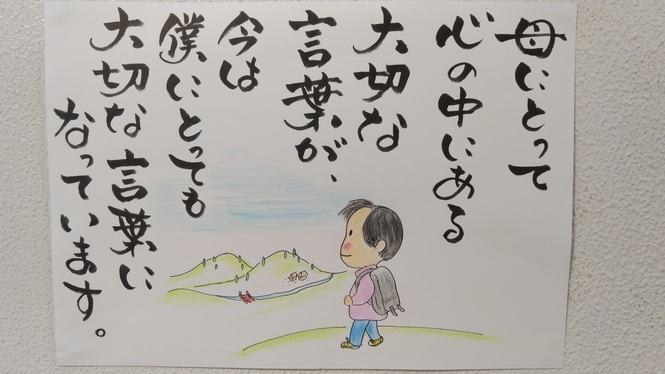 母にとって
心の中にある
大切な
言葉が、
今は
僕にとっても
大切な言葉に
なっています。